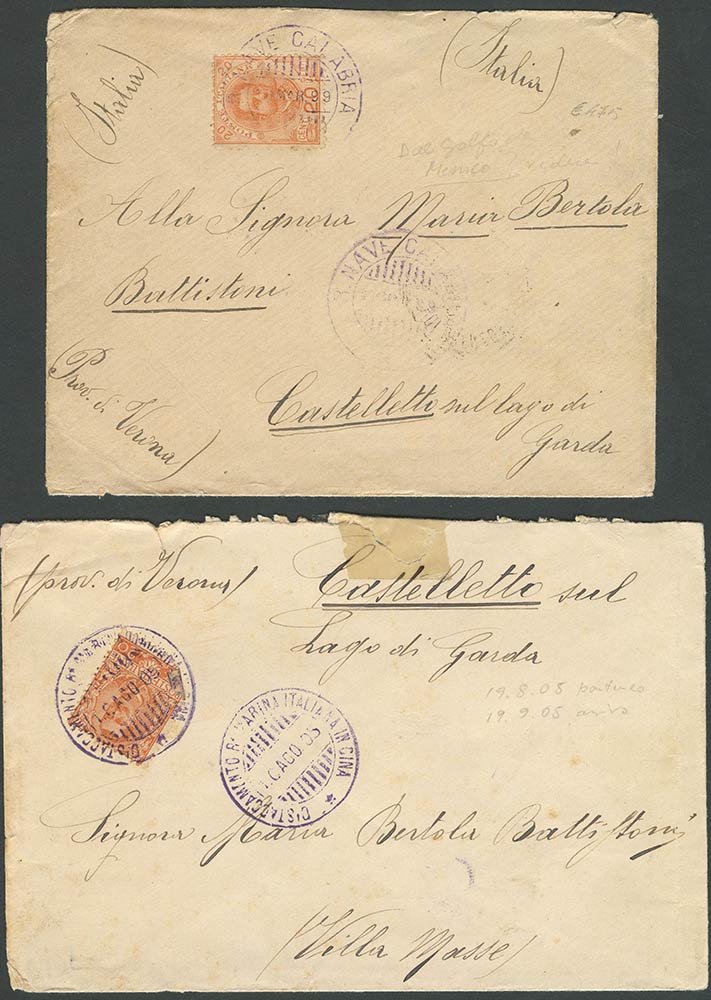 (Italia)
(Italia)
NAVE CALABRIA
99
20 20
POSTE
€475
Dal Golfo
Alla Signora Maria Bertola
Battistoni
R. NAVE CALABRIA
(Prov. di Verona)
Castelletto sul lago di
Garda
(prov. di Verona)
Castelletto sul
Lago di Garda
DISTACCAMENTO Rª MARINA ITALIANA IN CINA
AGO 05
DISTACCAMENTO Rª MARINA ITALIANA IN CINA
AGO 05
19.8.05
19.9.05
Signora Maria Bertola Battistoni
(Villa Masse)